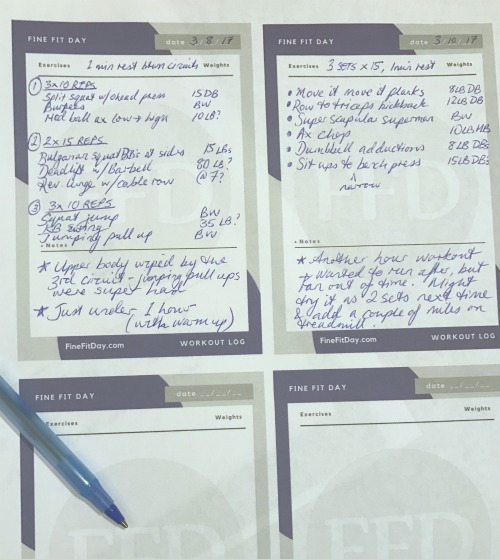 FINE FIT DAY
date 3/8/17
Exercises 1 min rest btwn circuits Weights
① 3x10 REPS
Split squat w/ohead press 15 DB
Burpees BW
Med ball ax low → high 10 LB?
② 2x15 REPS
Bulgarian squat DB's at sides 15 LBs
Deadlift w/Barbell 80 LB?
Rev. lunge w/cable row 7?
③ 3x10 REPS
Squat jump BW
KB swing 35 LB?
Jumping pull up BW
Notes
* Upper body wiped by the
3rd circuit - jumping pull ups
were super hard
* Just under 1 hour
(with warm up)
FineFitDay.com WORKOUT LOG
FINE FIT DAY
date 3/10/17
Exercises 3 SETS x 15, 1 min rest Weights
• Move it move it planks 8 LB DB
• Row to triceps kickback 12 LB DB
• Super scapular superman BW
• Ax chop 10 LB MB
• Dumbbell adductions 8 LB DBs
• Sit ups to bench press 15 LB DBs
^
narrow
Notes
* Another hour workout
→ Wanted to run after, but
ran out of time. Might
try it as 2 sets next time
& add a couple of miles on
treadmill.
FineFitDay.com WORKOUT LOG
FINE FIT DAY
date __/__/__
Exercises Weights
FED
FINE FIT DAY
date __/__/__
Exercises Weights
FED